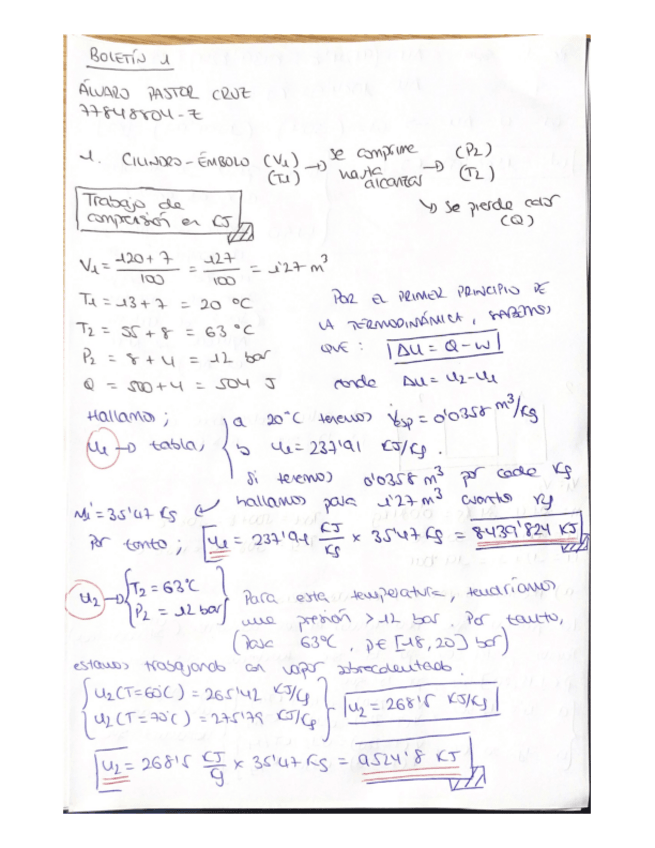 BOLETÍN 1
ÁLVARO PASTOR CRUZ
77848804-Z
1. CILINDRO-ÉMBOLO (V1) (T1) → se comprime hasta alcanzar → (P2) (T2)
↳ se pierde calor (Q)
Trabajo de compresión en KJ
V1 = 120+7 / 100 = 127 / 100 = 1'27 m³
T1 = 13+7 = 20 ºC
T2 = 55+8 = 63 ºC
P2 = 8+4 = 12 bar
Q = 500+4 = 504 J
POR EL PRIMER PRINCIPIO DE
LA TERMODINÁMICA, SABEMOS
QUE: ΔU = Q-W
donde ΔU = U2-U1
Hallamos;
U1 → tabla,
a 20ºC tenemos Vesp = 0'0358 m³/Kg
↳ U1 = 237'91 KJ/Kg.
Si tenemos 0'0358 m³ por cada Kg
hallamos para 1'27 m³ cuantos Kg
M1 = 35'47 Kg ↙
Por tanto; U1 = 237'91 KJ/Kg × 35'47 Kg = 8439'824 KJ
U2 → { T2 = 63ºC
P2 = 12 bar }
Para esta temperatura, tendríamos
una presión > 12 bar. Por tanto,
(para 63ºC, p∈[18,20] bar)
estamos trabajando con vapor sobrecalentado.
U2 (T=60ºC) = 265'42 KJ/Kg
U2 (T=70ºC) = 275'79 KJ/Kg
U2 = 268'5 KJ/Kg
U2 = 268'5 KJ/g × 35'47 Kg = 9524'8 KJ